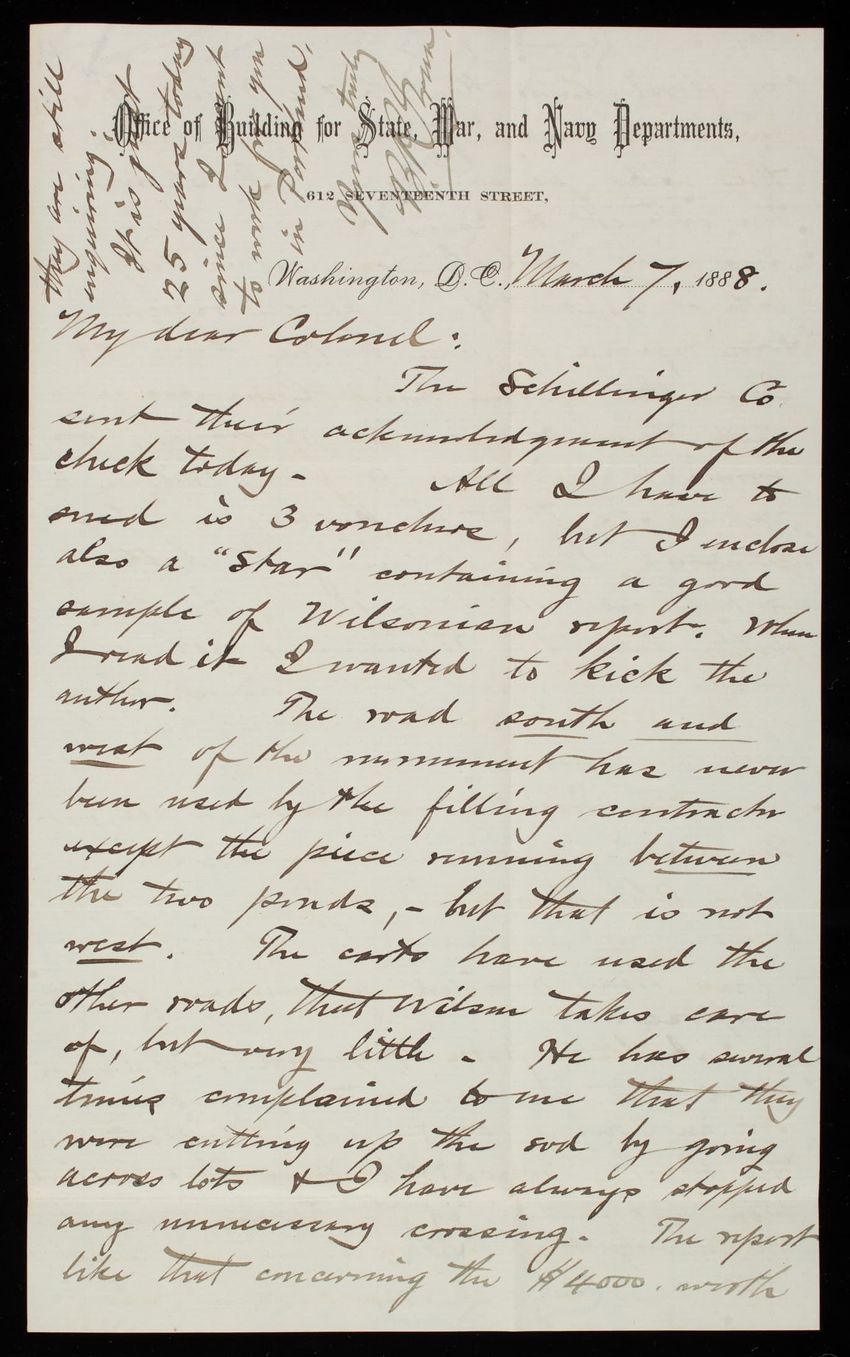 Office of Building for State, War, and Navy Departments,
612 SEVENTEENTH STREET,
Washington, D. C., March 7, 1888.
My dear Colonel:
The Schillinger Co
sent their acknowledgment of the
check today - All I have to
send is 3 vouchers, but I enclose
also a "Star" containing a good
sample of Wilsonian report. When
I read it I wanted to kick the
author. The road south and
west of the monument has never
been used by the filling contractor
except the piece running between
the two ponds, - but that is not
west. The carts have used the
other roads, that Wilson takes care
of, but very little - He has several
times complained to me that they
were cutting up the sod by going
across lots & I have always stopped
any unnecessary crossing. The report
like that concerning the $4000. worth
they are still
inquiring.
It is just
25 years today
since I went
to work for you
in Portland.
Yours truly